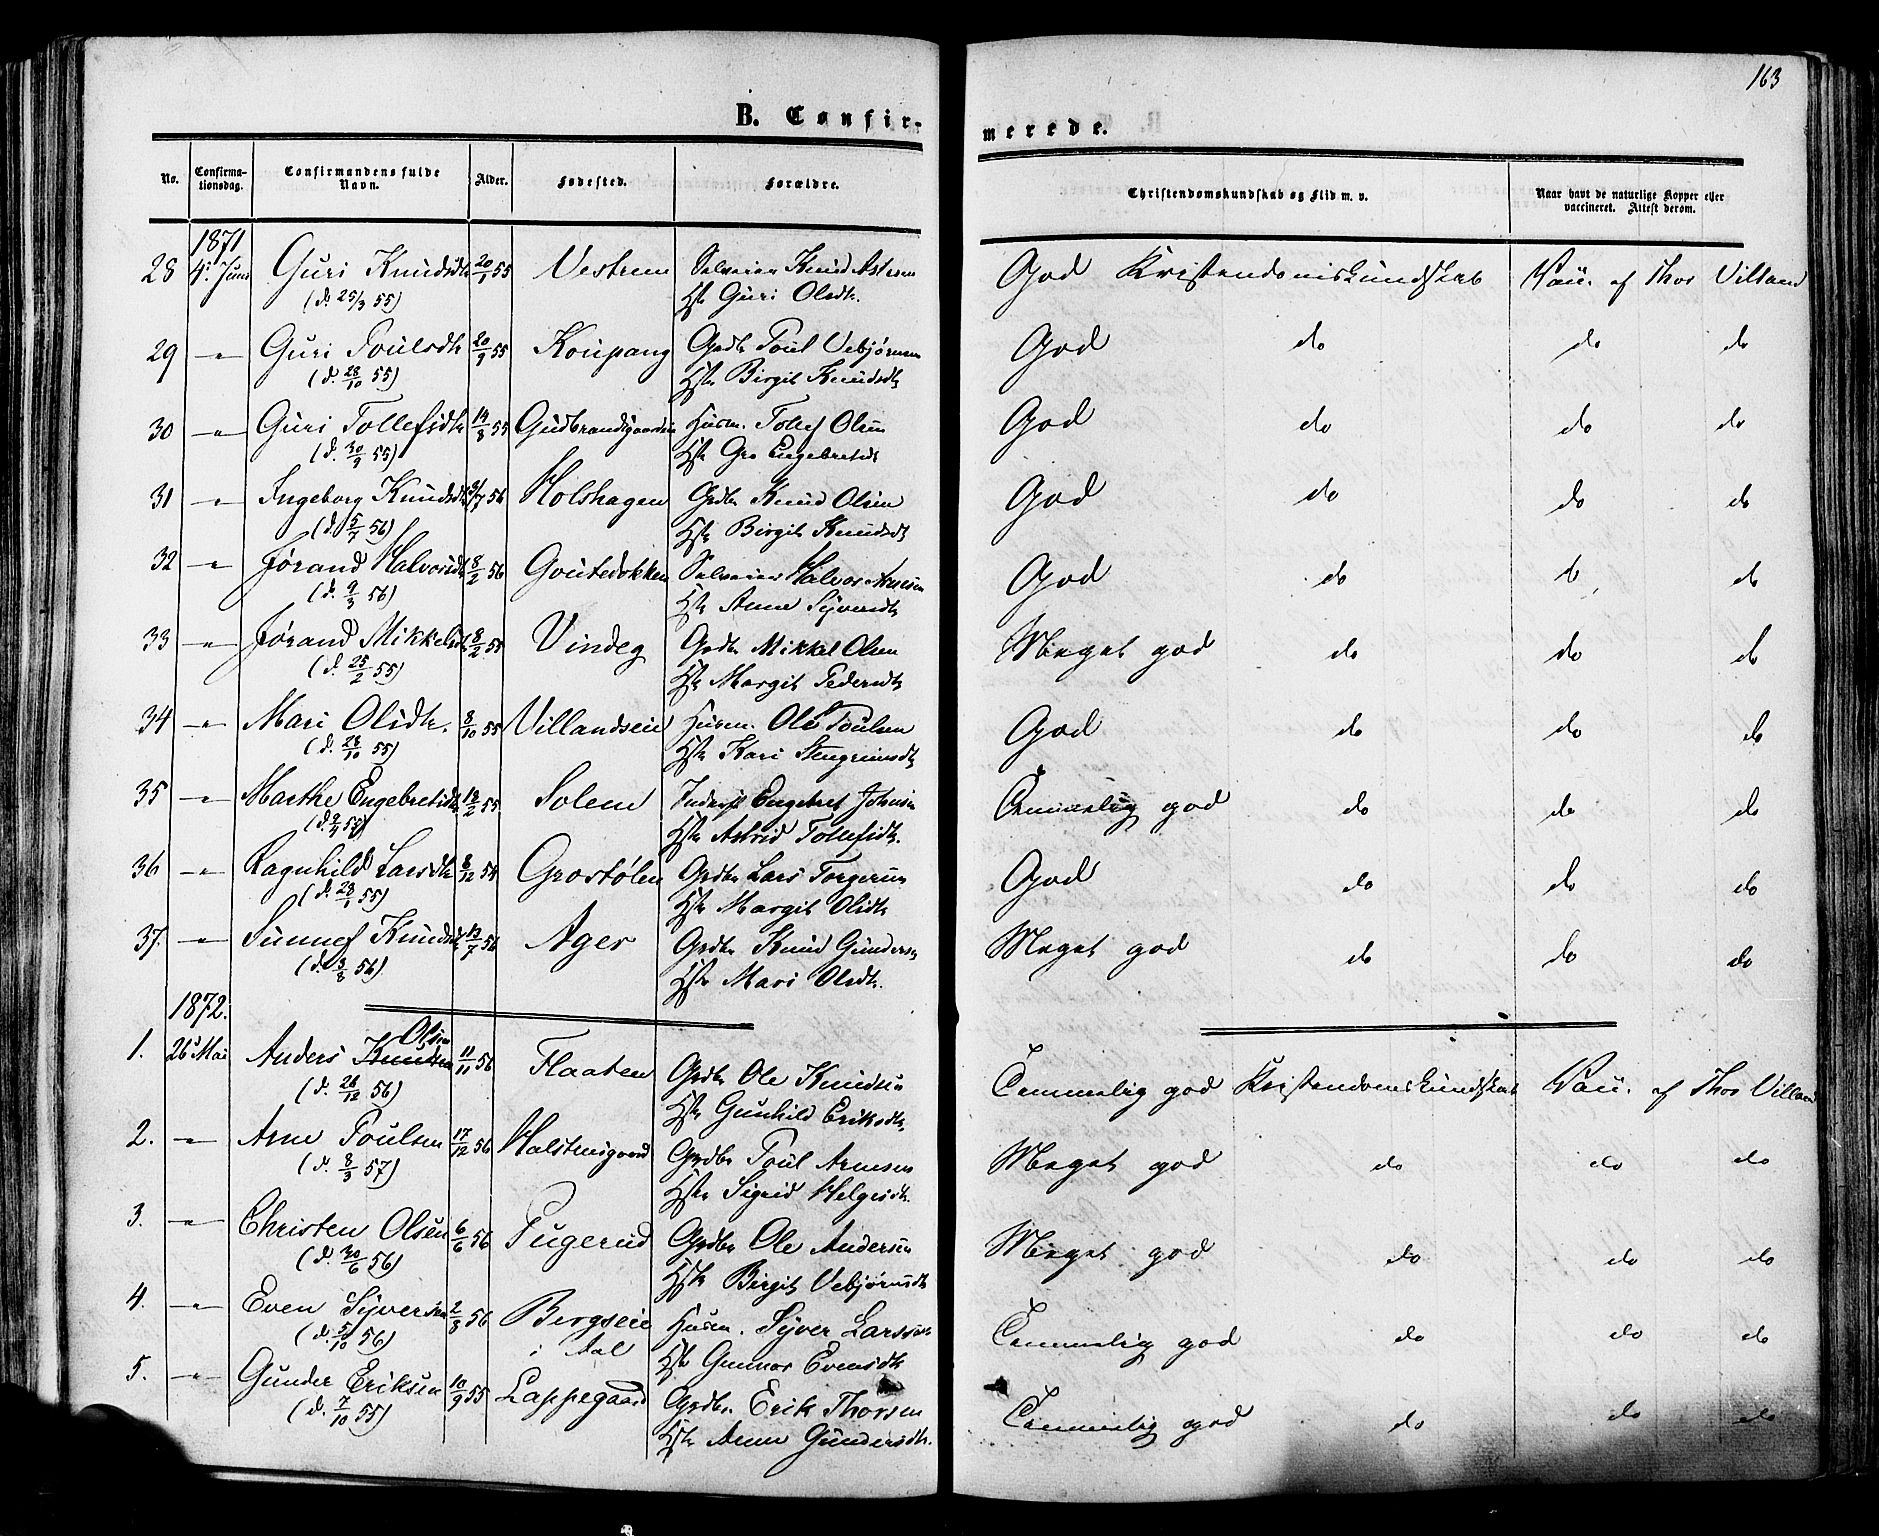 163
B. Confirmerede.
No. Confirmationsdag. Confirmandens fulde Navn. Alder. Fødested. Forældre. Christendomskundskab og Flid m. v. Naar havt de naturlige Kopper eller vaccineret. Attest derom.
1871
28 4de Juni Guri Knudsdtr 20/1 55 Vestrum Selveier Knud Asle God Kristendomskundskab Vacc. af Thor Villand
(d. 25/3 55) Hstr Guri Olsdtr.
29 " Guri Poulsdtr 20/9 55 Koupang Grdbr Poul Vebjørnsen God do do do
(d. 28/10 55) Hstr Birgit Knudsdtr
30 " Guri Tollefsdtr 14/8 55 Gudbrandsgaardseie Husm. Tollef Olsen God do do do
(d. 30/9 55) Hstr Gro Engebretsdtr
31 " Ingeborg Knudsdtr 56 Holshagen Grdbr Knud Olsen God do do do
(d. 5/7 56) Hstr Birgit Knudsdtr
32 " Jørand Halvorsdtr 8/2 56 Goutedokken Selveier Halvor Arnesen God do do do
(d. 9/3 56) Hstr Anne Syversdtr
33 " Jørand Mikkelsdtr 8/2 55 Vindeg Grdbr Mikkel Olsen Meget god do do do
(d. 25/2 55) Hstr Margit Pedersdtr
34 " Mari Olsdtr. 8/10 55 Villandseie Husm. Ole Poulsen God do do do
(d. 28/10 55) Hstr Kari Stengrimsdtr
35 " Marthe Engebretsdtr 12/2 55 Solem Inderst Engebret Johnsen Temmelig god do do do
(d. 9/4 55) Hstr Astrid Tollefsdtr.
36 " Ragnhild Larsdtr 8/12 54 Grostølen Grdbr Lars Torgersen God do do do
(d. 28/1 55) Hstr Margit Olsdtr
37. " Sunnef Knudsdtr 13/7 56 Ager Grdbr Knud Gundersen Meget god do do do
(d. 3/8 56) Hstr Mari Olsdtr.
1872.
Olsen
1. 26de Mai Anders Knudsen 11/11 56 Flaaten Grdbr Ole Knudsen Temmelig god Kristendomskundskab Vacc. af Thor Villand
(d. 26/12 56) Hstr Gunhild Eriksdtr.
2. " Arne Poulsen 17/12 56 Halstensgaard Grdbr Poul Arnesen Meget god do do do
(d. 8/3 57) Hstr Sigrid Helgesdtr.
3. " Christen Olsen 6/6 56 Tugerud Grdbr Ole Andersen Meget god do do do
(d. 30/6 56) Hstr Birgit Vebjørnsdtr
4. " Even Syversen 2/8 56 Bergseie Husm. Syver Larssen Temmelig god do do do
(d. 5/10 56) i Aal Hstr Gunnor Evensdtr
5. " Gunder Eriksen 10/9 55 Lappegaard Grdbr. Erik Thorsen Temmelig god do do do
(d. 7/10 55) Hstr Anne Gundersdtr.